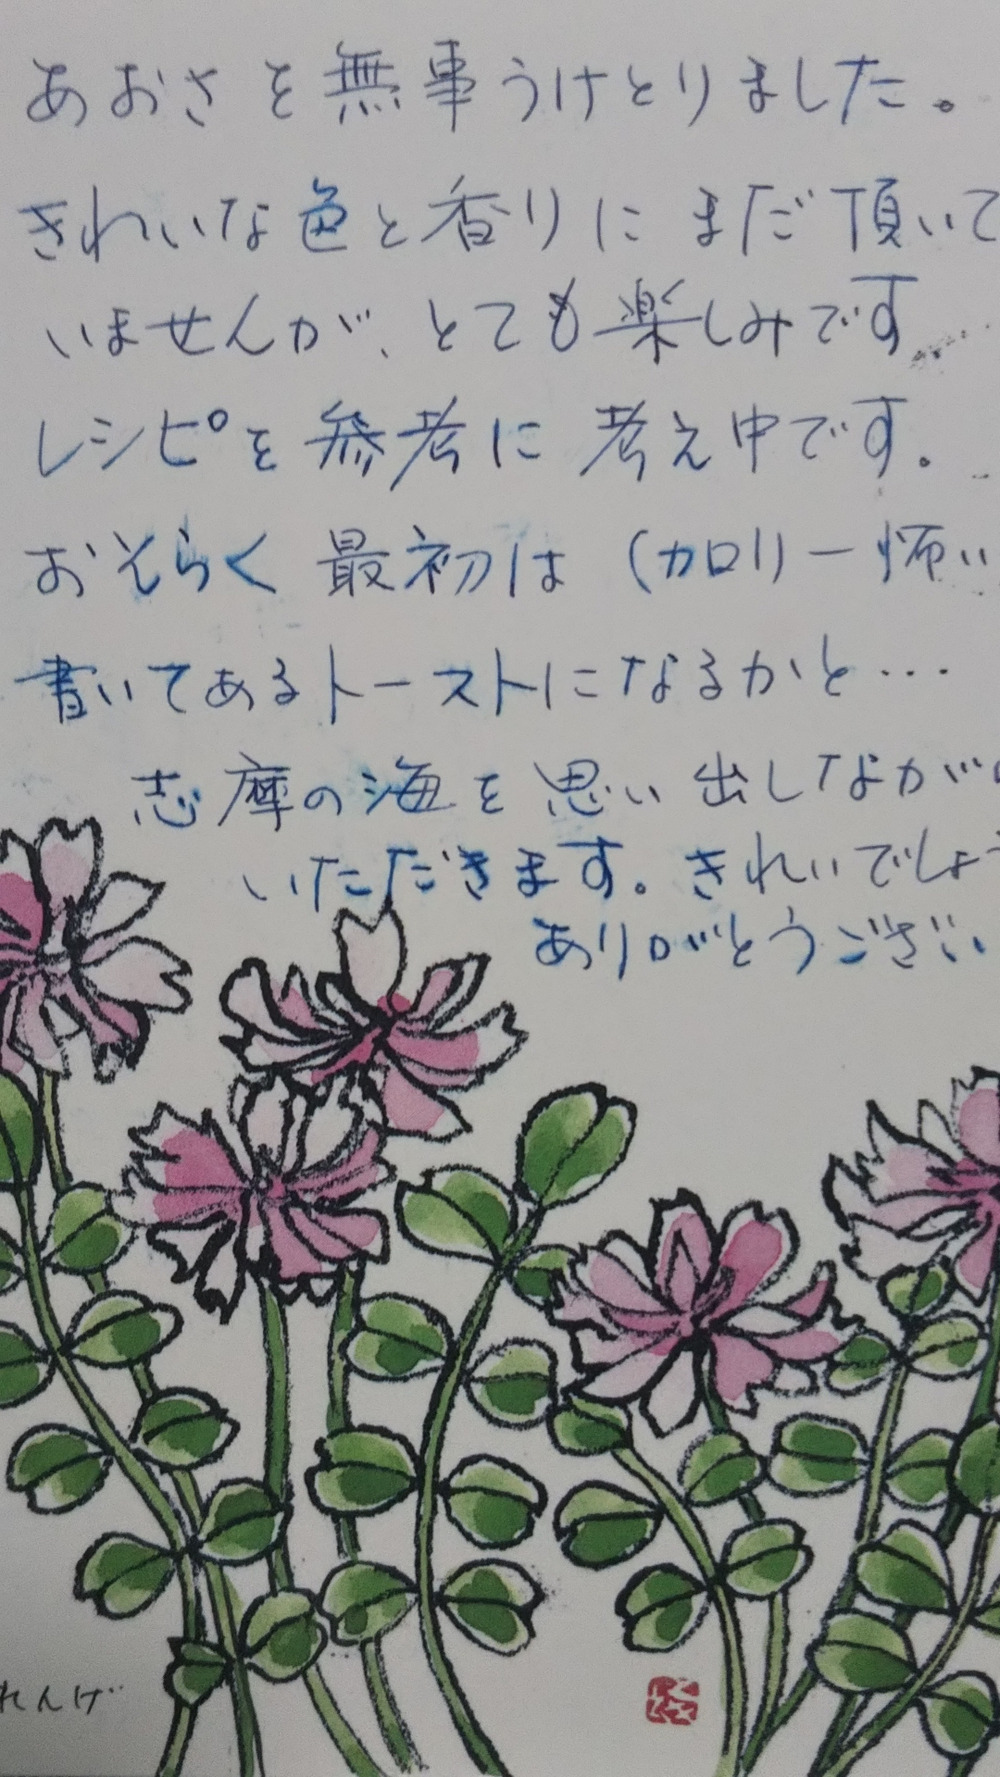 あおさを無事うけとりました。
きれいな色と香りにまだ頂いて
いませんが、とても楽しみです
レシピを参考に考え中です。
おそらく最初は(カロリー怖い
書いてあるトーストになるかと…
志摩の海を思い出しながら
いただきます。きれいでしょう
ありがとうござい
れんげ